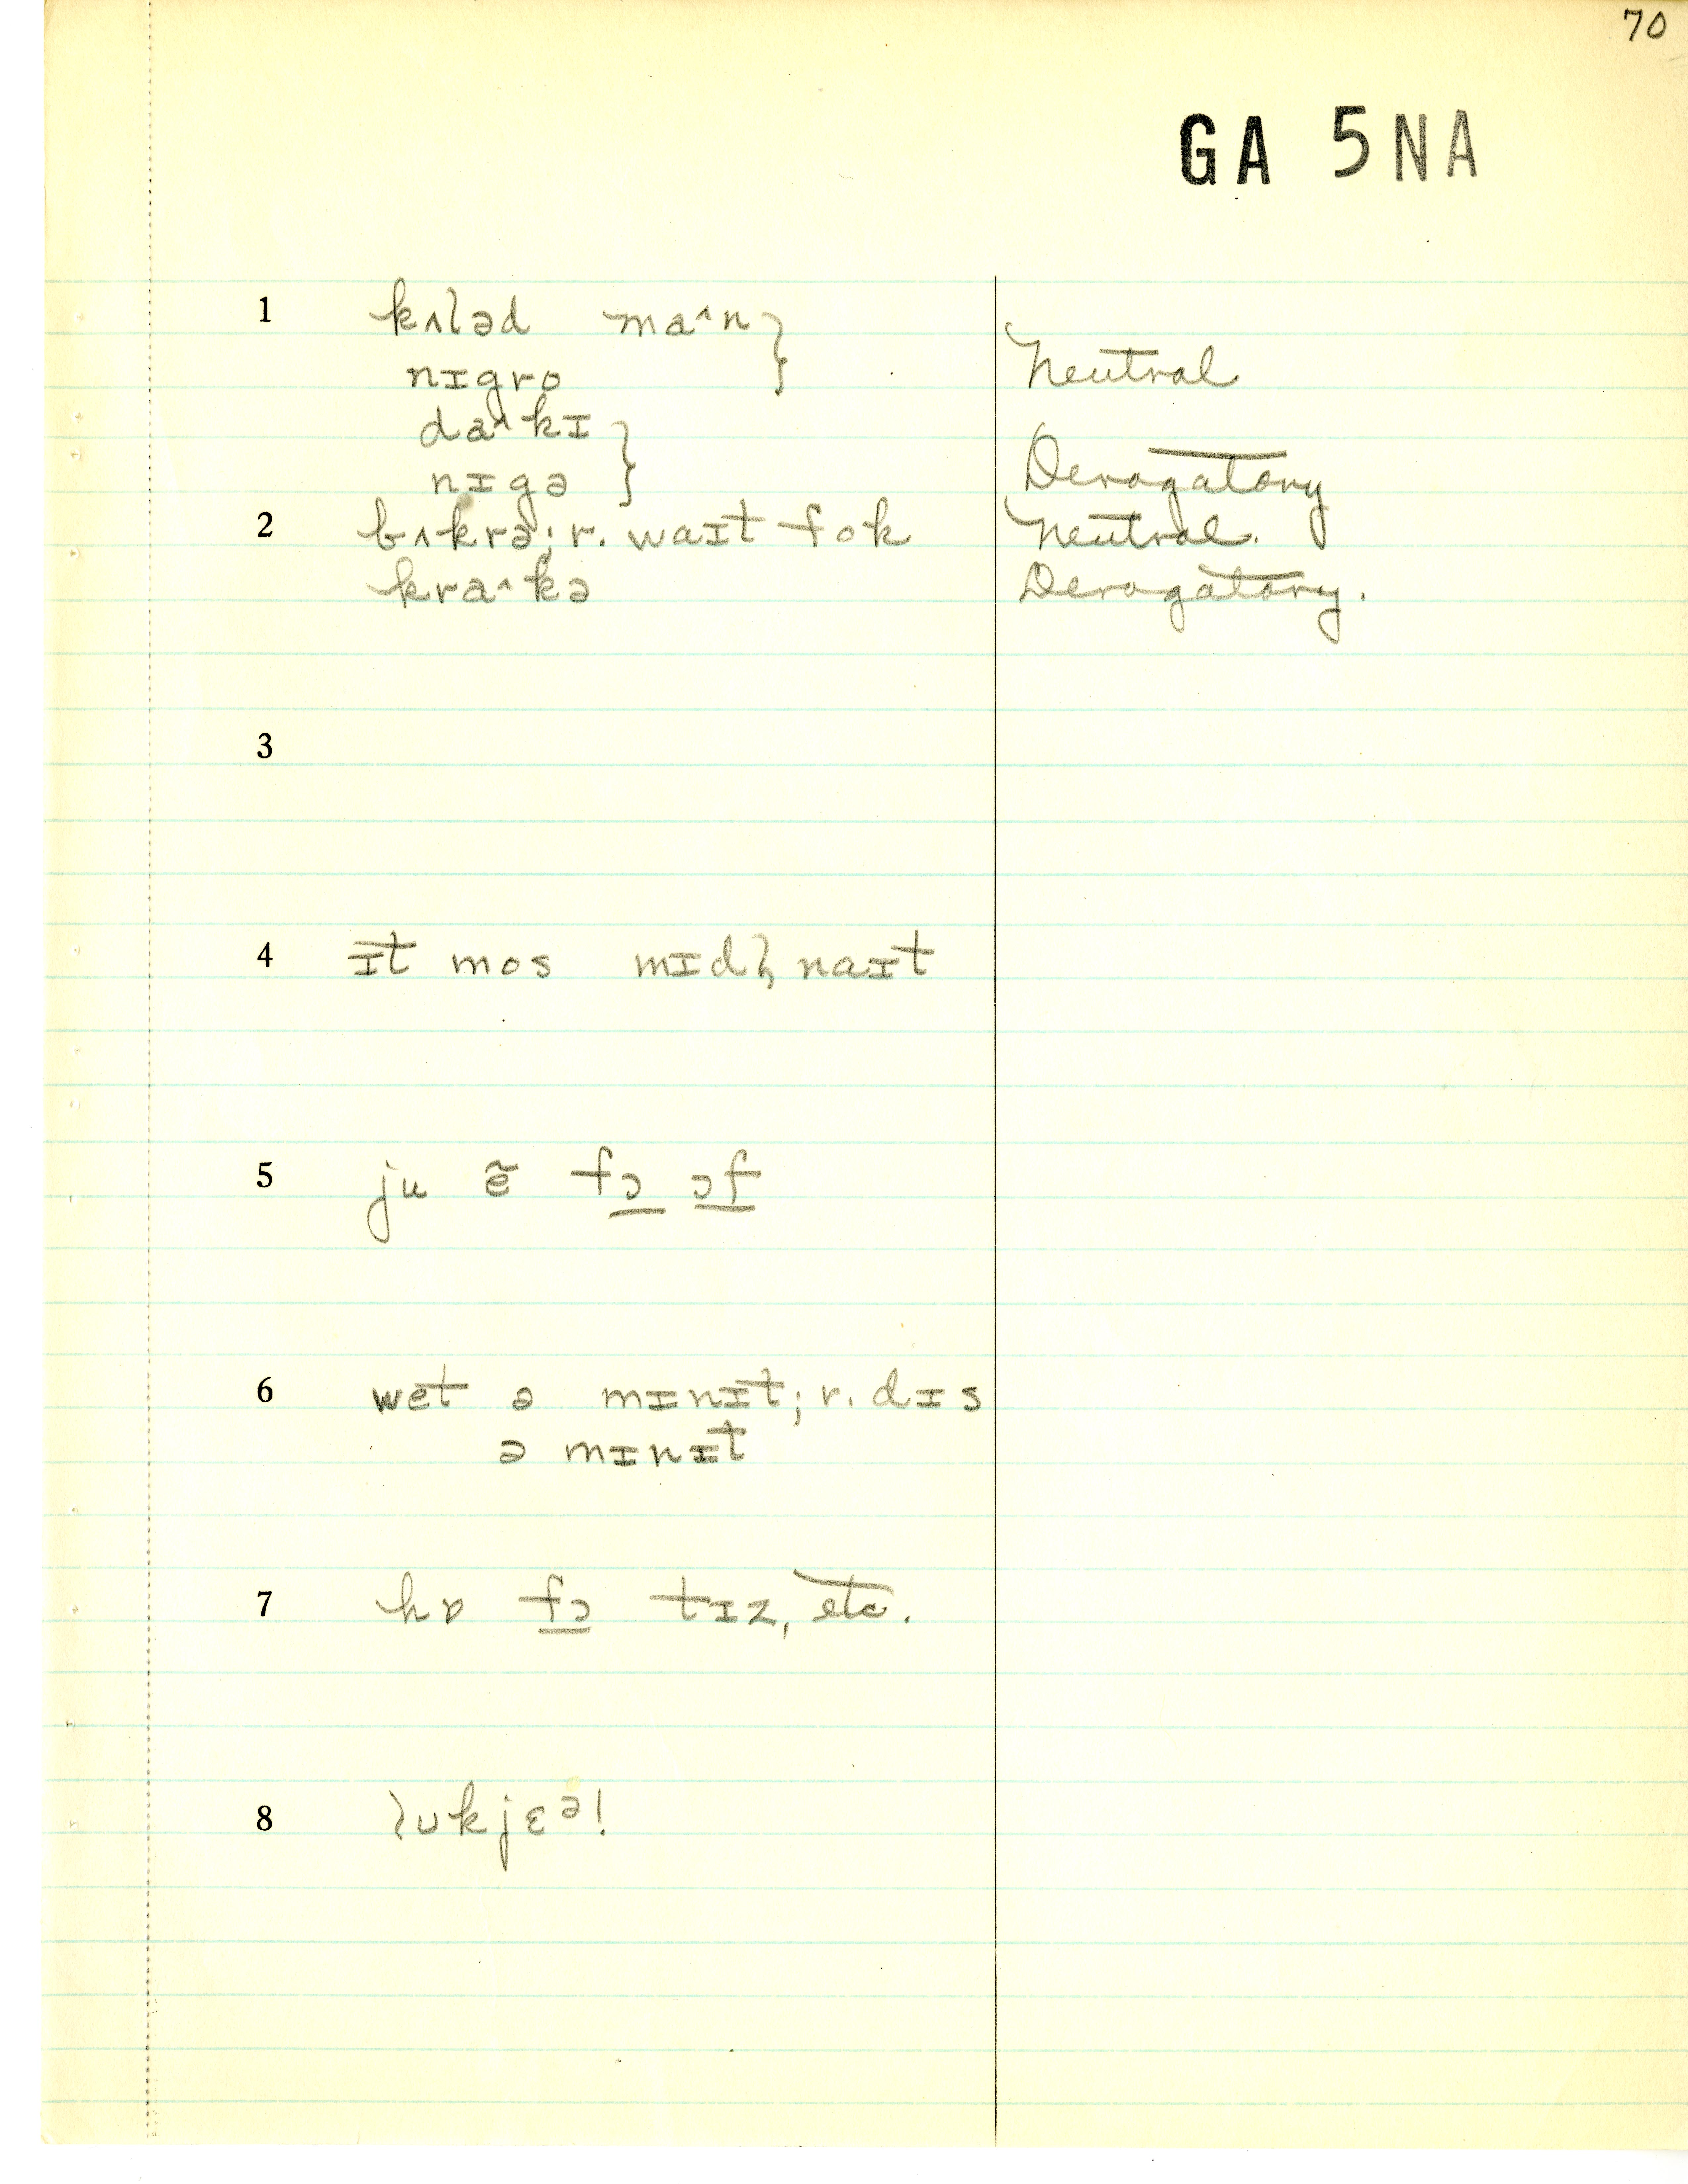 70
GA 5NA
1 kʌləd maˆn }
nɪgro } Neutral
daˆkɪ }
nɪgə } Derogatory
2 bʌkrə; r. waɪt fok Neutral.
kraˆkə Derogatory.
3
4 ɪt mos mɪdl̩ naɪt
5 ju ẽ fɔ ɔf
6 wet ə mɪnɪt; r. dɪs
ə mɪnɪt
7 hɒ fɔ tɪz, etc.
8 lʊkjɛᵊ!